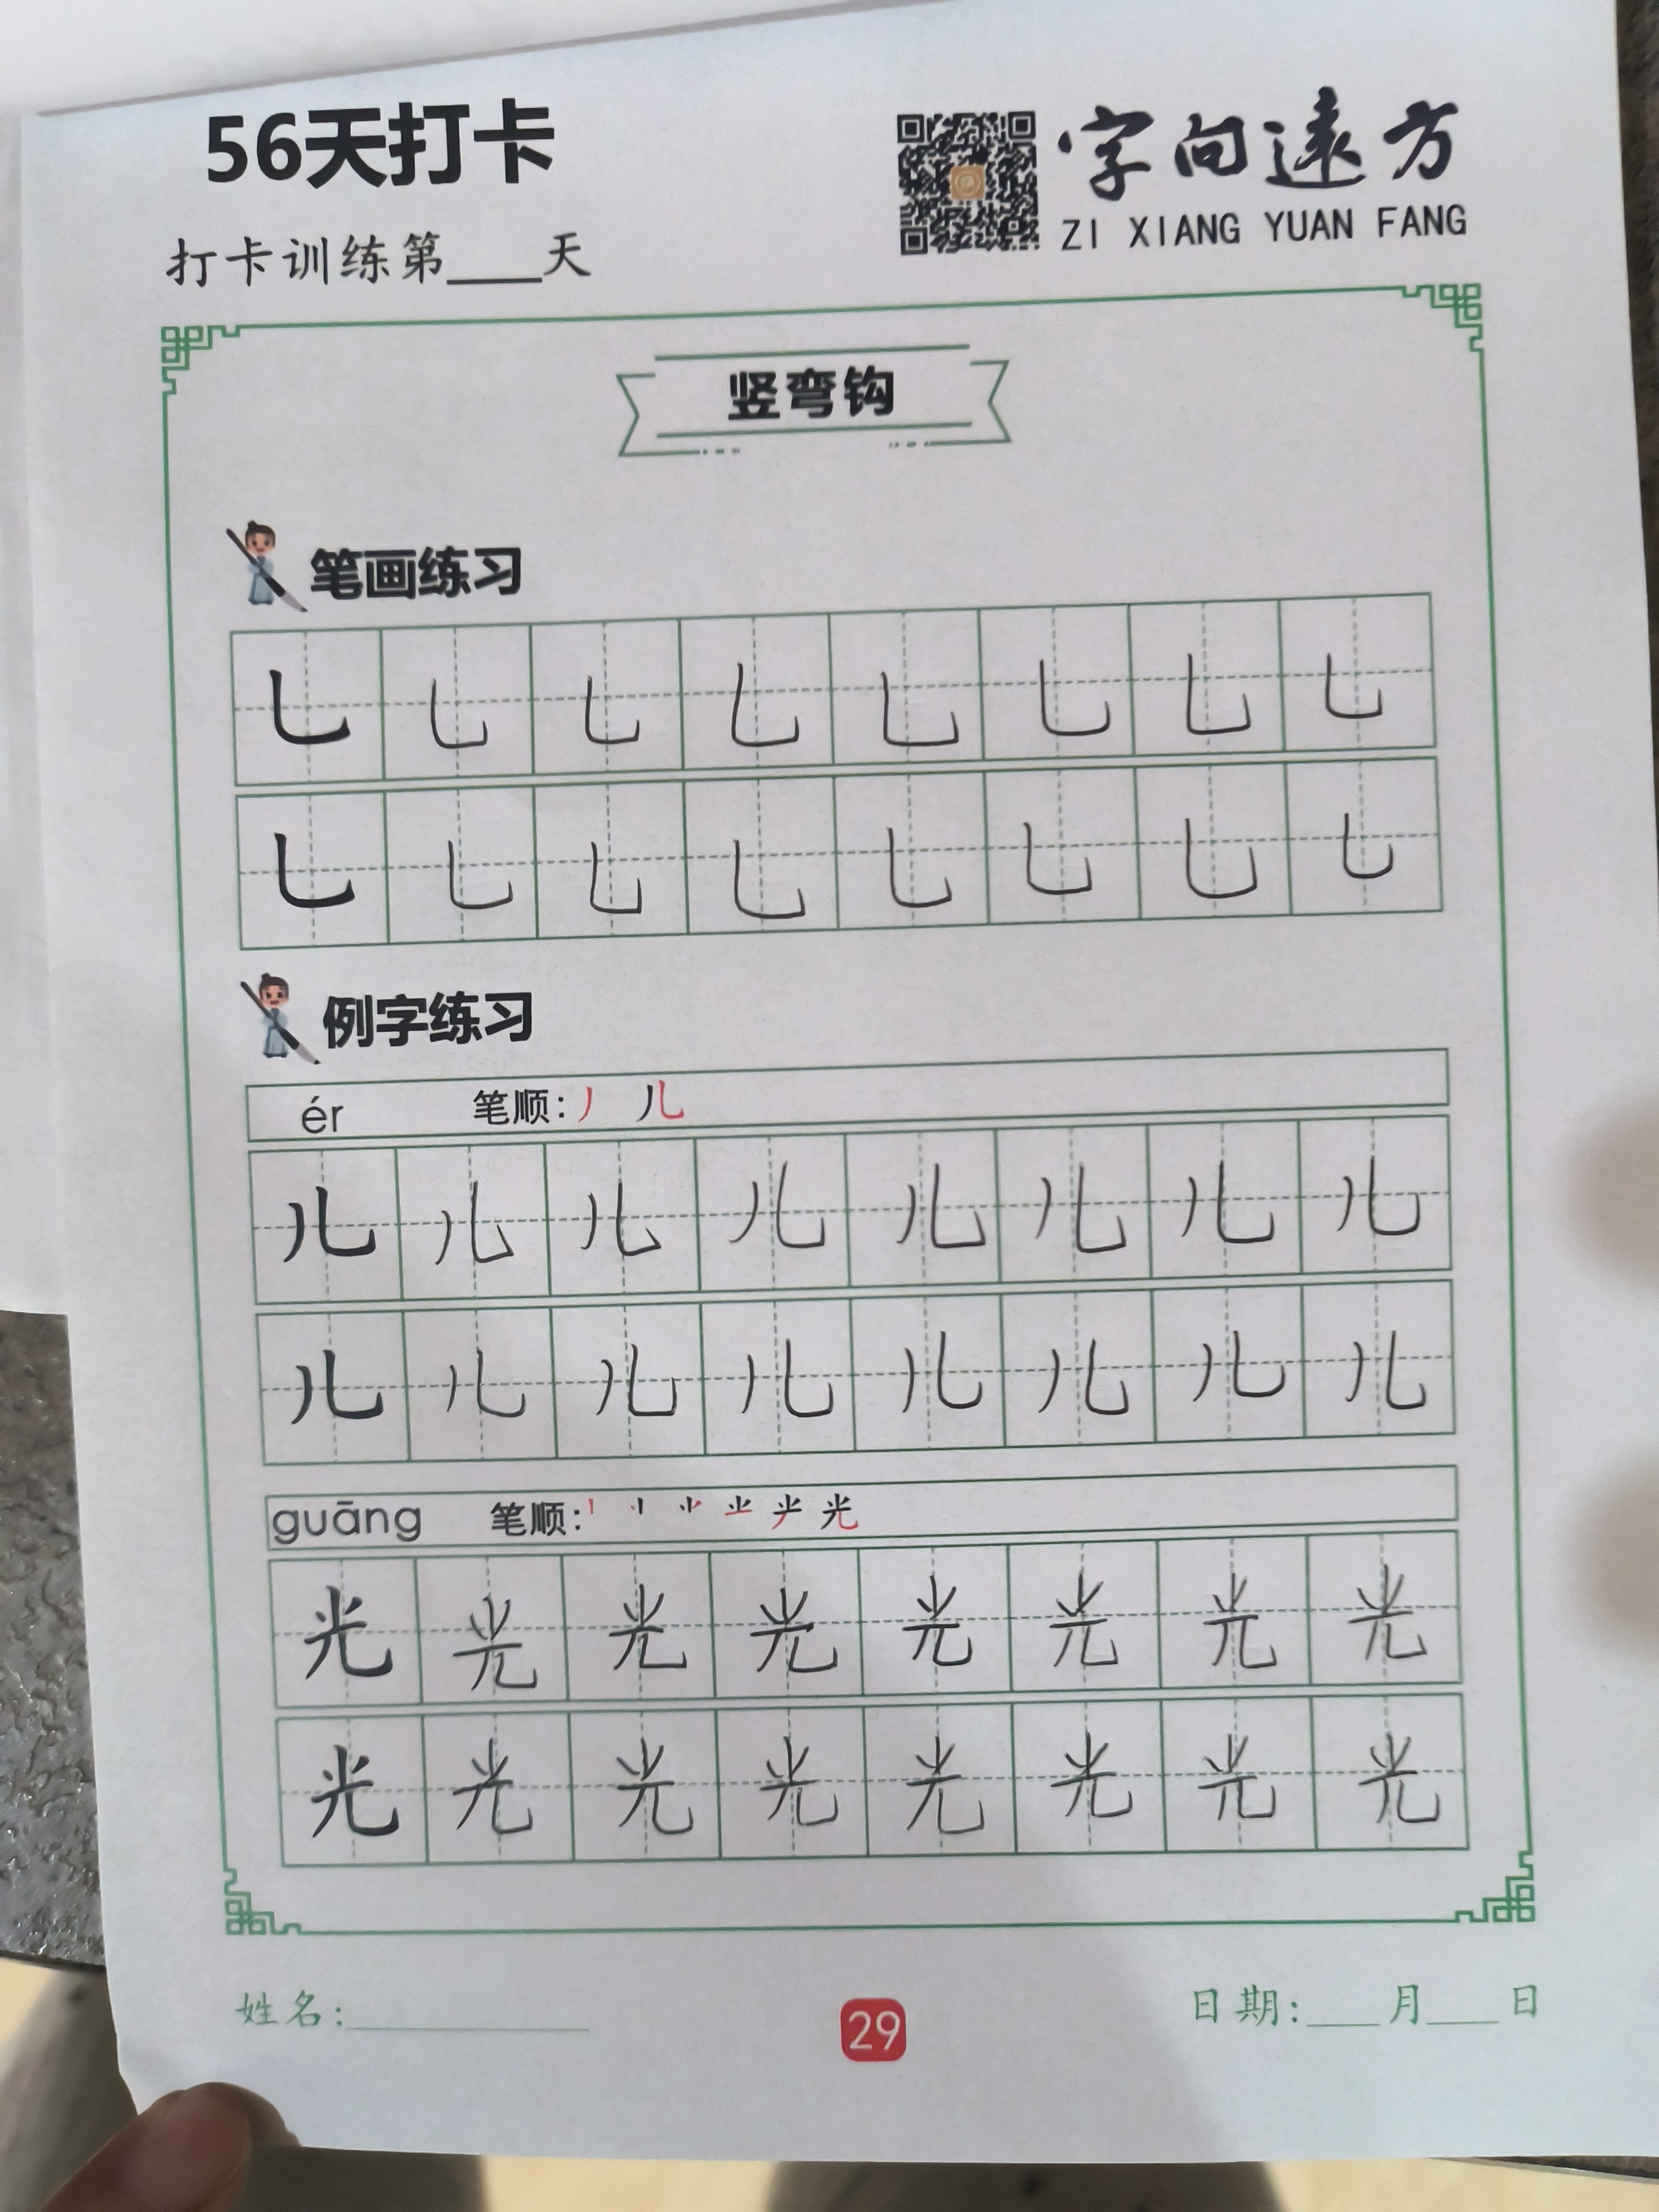 56天打卡
字向遠方
ZI XIANG YUAN FANG
打卡训练第____天
竖弯钩
笔画练习
乚 乚 乚 乚 乚 乚 乚 乚
乚 乚 乚 乚 乚 乚 乚 乚
例字练习
ér 笔顺: 丿 儿
儿 儿 儿 儿 儿 儿 儿 儿
儿 儿 儿 儿 儿 儿 儿 儿
guāng 笔顺: 光
光 光 光 光 光 光 光 光
光 光 光 光 光 光 光 光
姓名:__________ 29 日期:___月___日